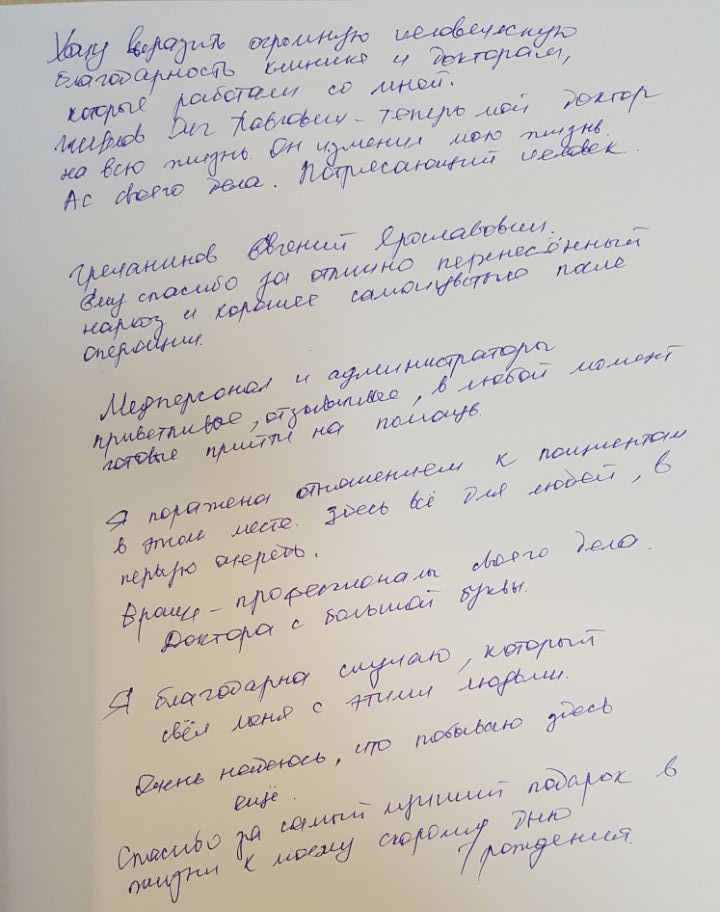 Хочу выразить огромную человеческую
благодарность клинике и докторам,
которые работали со мной.
Олег Павлович - теперь мой доктор
на всю жизнь. Он изменил мою жизнь.
Ас своего дела. Потрясающий человек.
Гречанинов Евгений Ярославович.
Ему спасибо за отлично перенесённый
наркоз и хорошее самочувствие после
операции.
Медперсонал и администраторы
приветливые, отзывчивые, в любой момент
готовые прийти на помощь.
Я поражена отношением к пациентам
в этом месте. Здесь всё для людей, в
первую очередь.
Врачи - профессионалы своего дела.
Доктора с большой буквы.
Я благодарна случаю, который
свёл меня с этими людьми.
Очень надеюсь, что побываю здесь
ещё.
Спасибо за самый лучший подарок в
жизни к моему скорому дню
рождения.